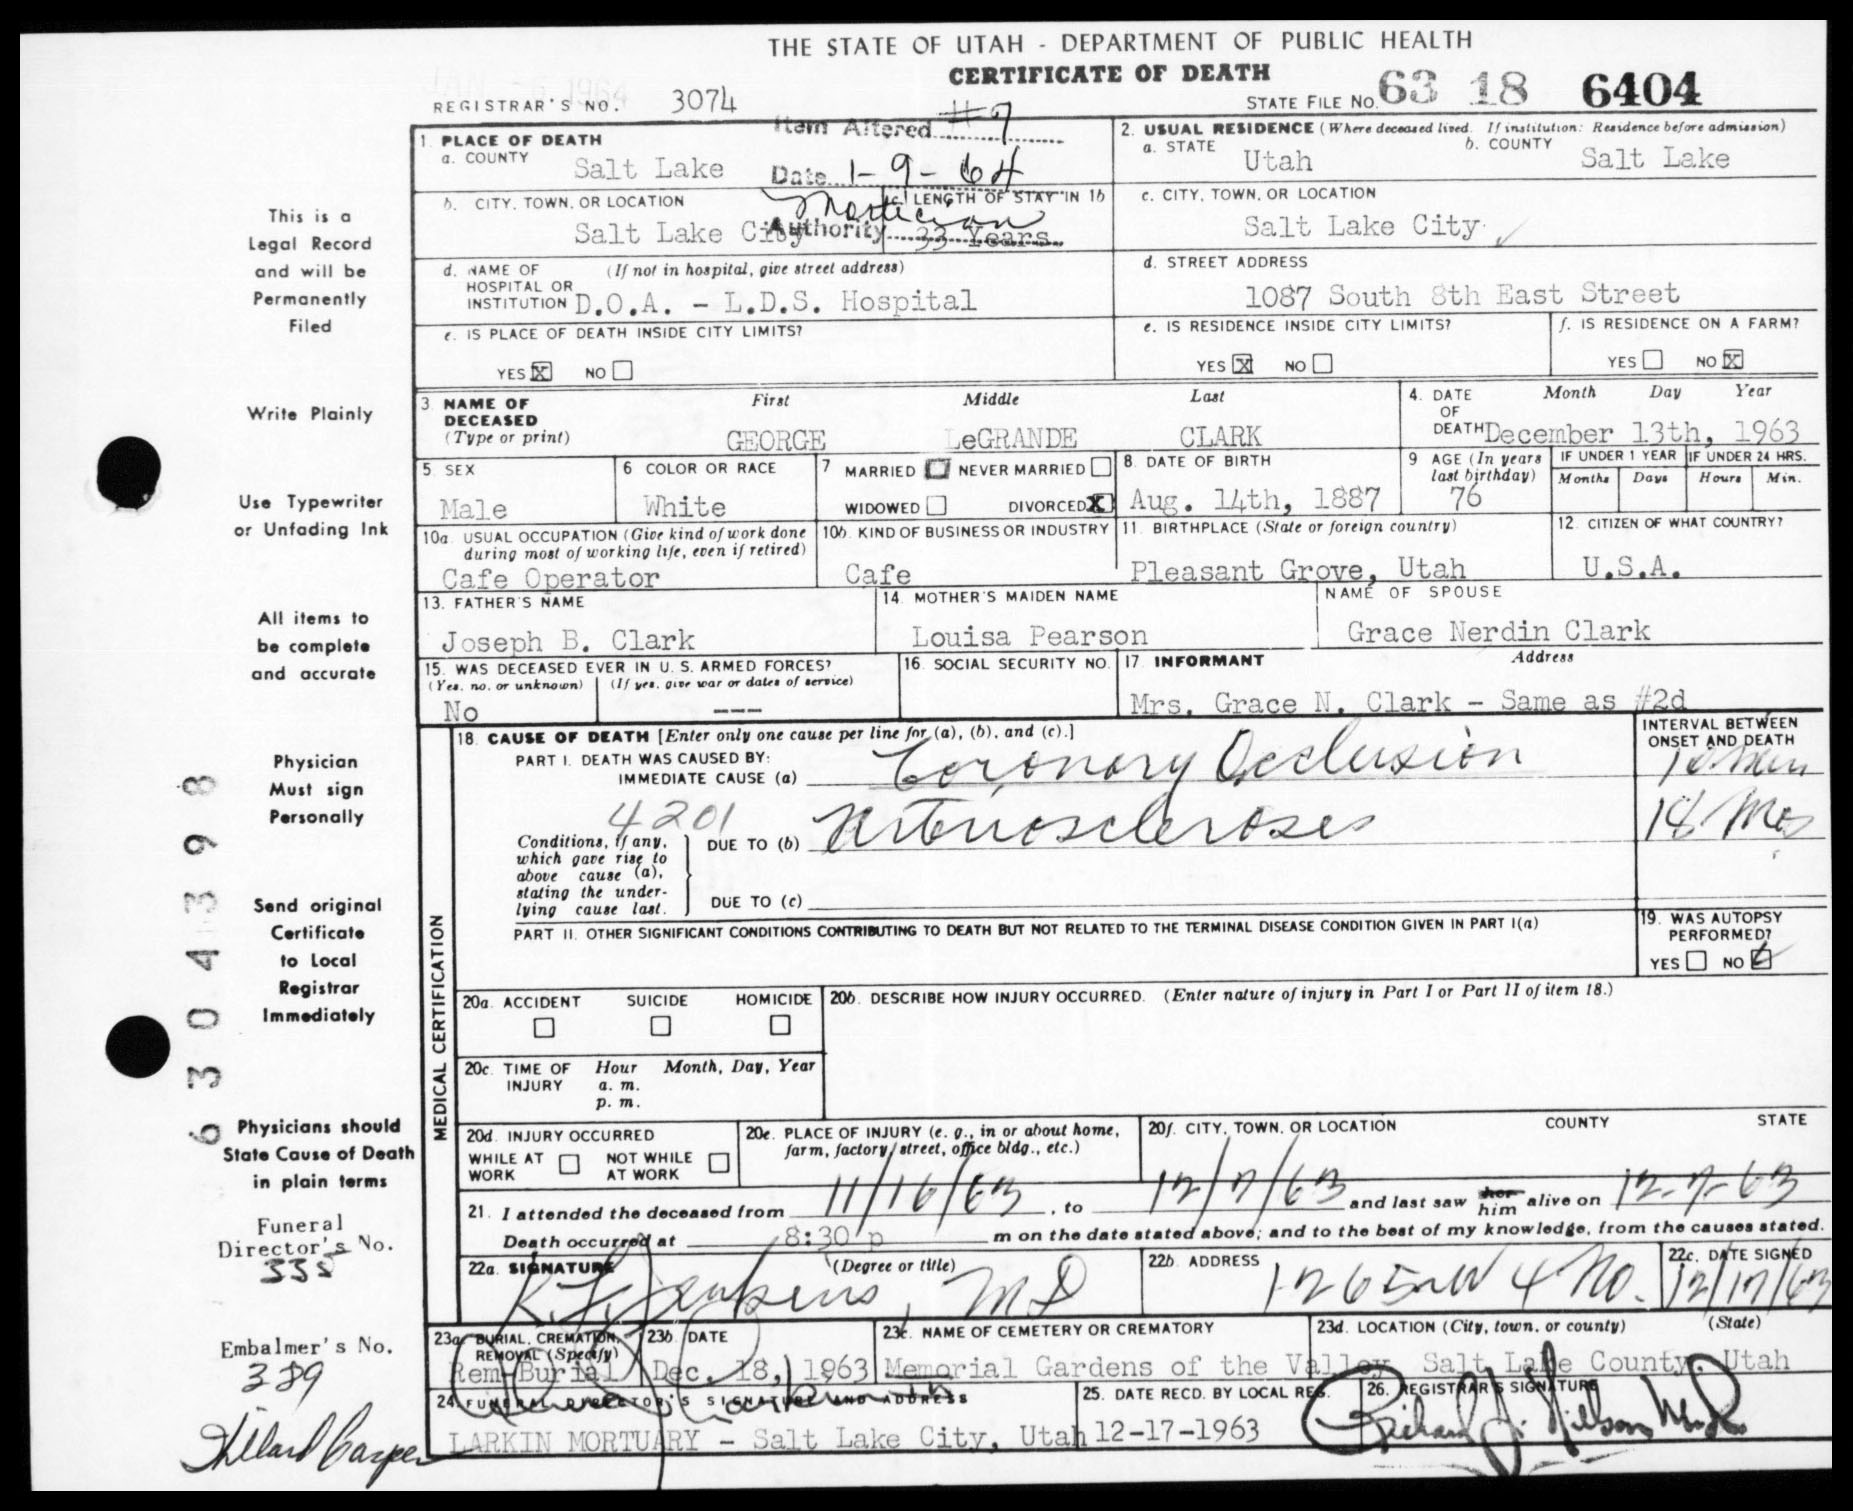 THE STATE OF UTAH - DEPARTMENT OF PUBLIC HEALTH
CERTIFICATE OF DEATH
REGISTRAR'S NO. 3074
STATE FILE NO. 63 18 6404
Item Altered #7
Date 1-9-64
Authority Mortician
1. PLACE OF DEATH
a. COUNTY Salt Lake
b. CITY, TOWN, OR LOCATION Salt Lake City
c. LENGTH OF STAY IN 1b 33 Years
d. NAME OF HOSPITAL OR INSTITUTION (If not in hospital, give street address) D.O.A. - L.D.S. Hospital
e. IS PLACE OF DEATH INSIDE CITY LIMITS?
YES X NO
2. USUAL RESIDENCE (Where deceased lived. If institution: Residence before admission)
a. STATE Utah b. COUNTY Salt Lake
c. CITY, TOWN, OR LOCATION Salt Lake City
d. STREET ADDRESS 1087 South 8th East Street
e. IS RESIDENCE INSIDE CITY LIMITS?
YES X NO
f. IS RESIDENCE ON A FARM?
YES NO X
3. NAME OF DECEASED (Type or print)
First Middle Last
GEORGE LeGRANDE CLARK
4. DATE OF DEATH Month Day Year
December 13th, 1963
5. SEX Male
6. COLOR OR RACE White
7. MARRIED NEVER MARRIED
WIDOWED DIVORCED X
8. DATE OF BIRTH Aug. 14th, 1887
9. AGE (In years last birthday) 76
IF UNDER 1 YEAR Months Days
IF UNDER 24 HRS. Hours Min.
10a. USUAL OCCUPATION (Give kind of work done during most of working life, even if retired)
Cafe Operator
10b. KIND OF BUSINESS OR INDUSTRY
Cafe
11. BIRTHPLACE (State or foreign country)
Pleasant Grove, Utah
12. CITIZEN OF WHAT COUNTRY?
U.S.A.
13. FATHER'S NAME
Joseph B. Clark
14. MOTHER'S MAIDEN NAME
Louisa Pearson
NAME OF SPOUSE
Grace Nerdin Clark
15. WAS DECEASED EVER IN U.S. ARMED FORCES?
(Yes, no, or unknown) (If yes, give war or dates of service)
No ---
16. SOCIAL SECURITY NO.
17. INFORMANT Address
Mrs. Grace N. Clark - Same as #2d
MEDICAL CERTIFICATION
18. CAUSE OF DEATH [Enter only one cause per line for (a), (b), and (c).]
PART I. DEATH WAS CAUSED BY:
IMMEDIATE CAUSE (a) Coronary Occlusion
4201
Conditions, if any, which gave rise to above cause (a), stating the underlying cause last.
DUE TO (b) Arteriosclerosis
DUE TO (c)
INTERVAL BETWEEN ONSET AND DEATH
10 Min
18 Mos
PART II. OTHER SIGNIFICANT CONDITIONS CONTRIBUTING TO DEATH BUT NOT RELATED TO THE TERMINAL DISEASE CONDITION GIVEN IN PART I(a)
19. WAS AUTOPSY PERFORMED?
YES NO
20a. ACCIDENT SUICIDE HOMICIDE
20b. DESCRIBE HOW INJURY OCCURRED. (Enter nature of injury in Part I or Part II of item 18.)
20c. TIME OF INJURY Hour Month, Day, Year
a. m.
p. m.
20d. INJURY OCCURRED
WHILE AT WORK NOT WHILE AT WORK
20e. PLACE OF INJURY (e. g., in or about home, farm, factory, street, office bldg., etc.)
20f. CITY, TOWN, OR LOCATION COUNTY STATE
21. I attended the deceased from 11/16/63, to 12/7/63 and last saw her him alive on 12-7-63
Death occurred at 8:30 p m on the date stated above; and to the best of my knowledge, from the causes stated.
22a. SIGNATURE (Degree or title)
Jenkins, MD
22b. ADDRESS
22c. DATE SIGNED
12/17/63
23a. BURIAL, CREMATION, REMOVAL (Specify)
Rem-Burial
23b. DATE
Dec. 18, 1963
23c. NAME OF CEMETERY OR CREMATORY
Memorial Gardens of the Valley
23d. LOCATION (City, town, or county) (State)
Salt Lake County, Utah
24. FUNERAL DIRECTOR'S SIGNATURE AND ADDRESS
LARKIN MORTUARY - Salt Lake City, Utah
25. DATE RECD. BY LOCAL REG.
12-17-1963
26. REGISTRAR'S SIGNATURE
This is a
Legal Record
and will be
Permanently
Filed
Write Plainly
Use Typewriter
or Unfading Ink
All items to
be complete
and accurate
Physician
Must sign
Personally
Send original
Certificate
to Local
Registrar
Immediately
Physicians should
State Cause of Death
in plain terms
Funeral
Director's No.
Embalmer's No.
389
6304398